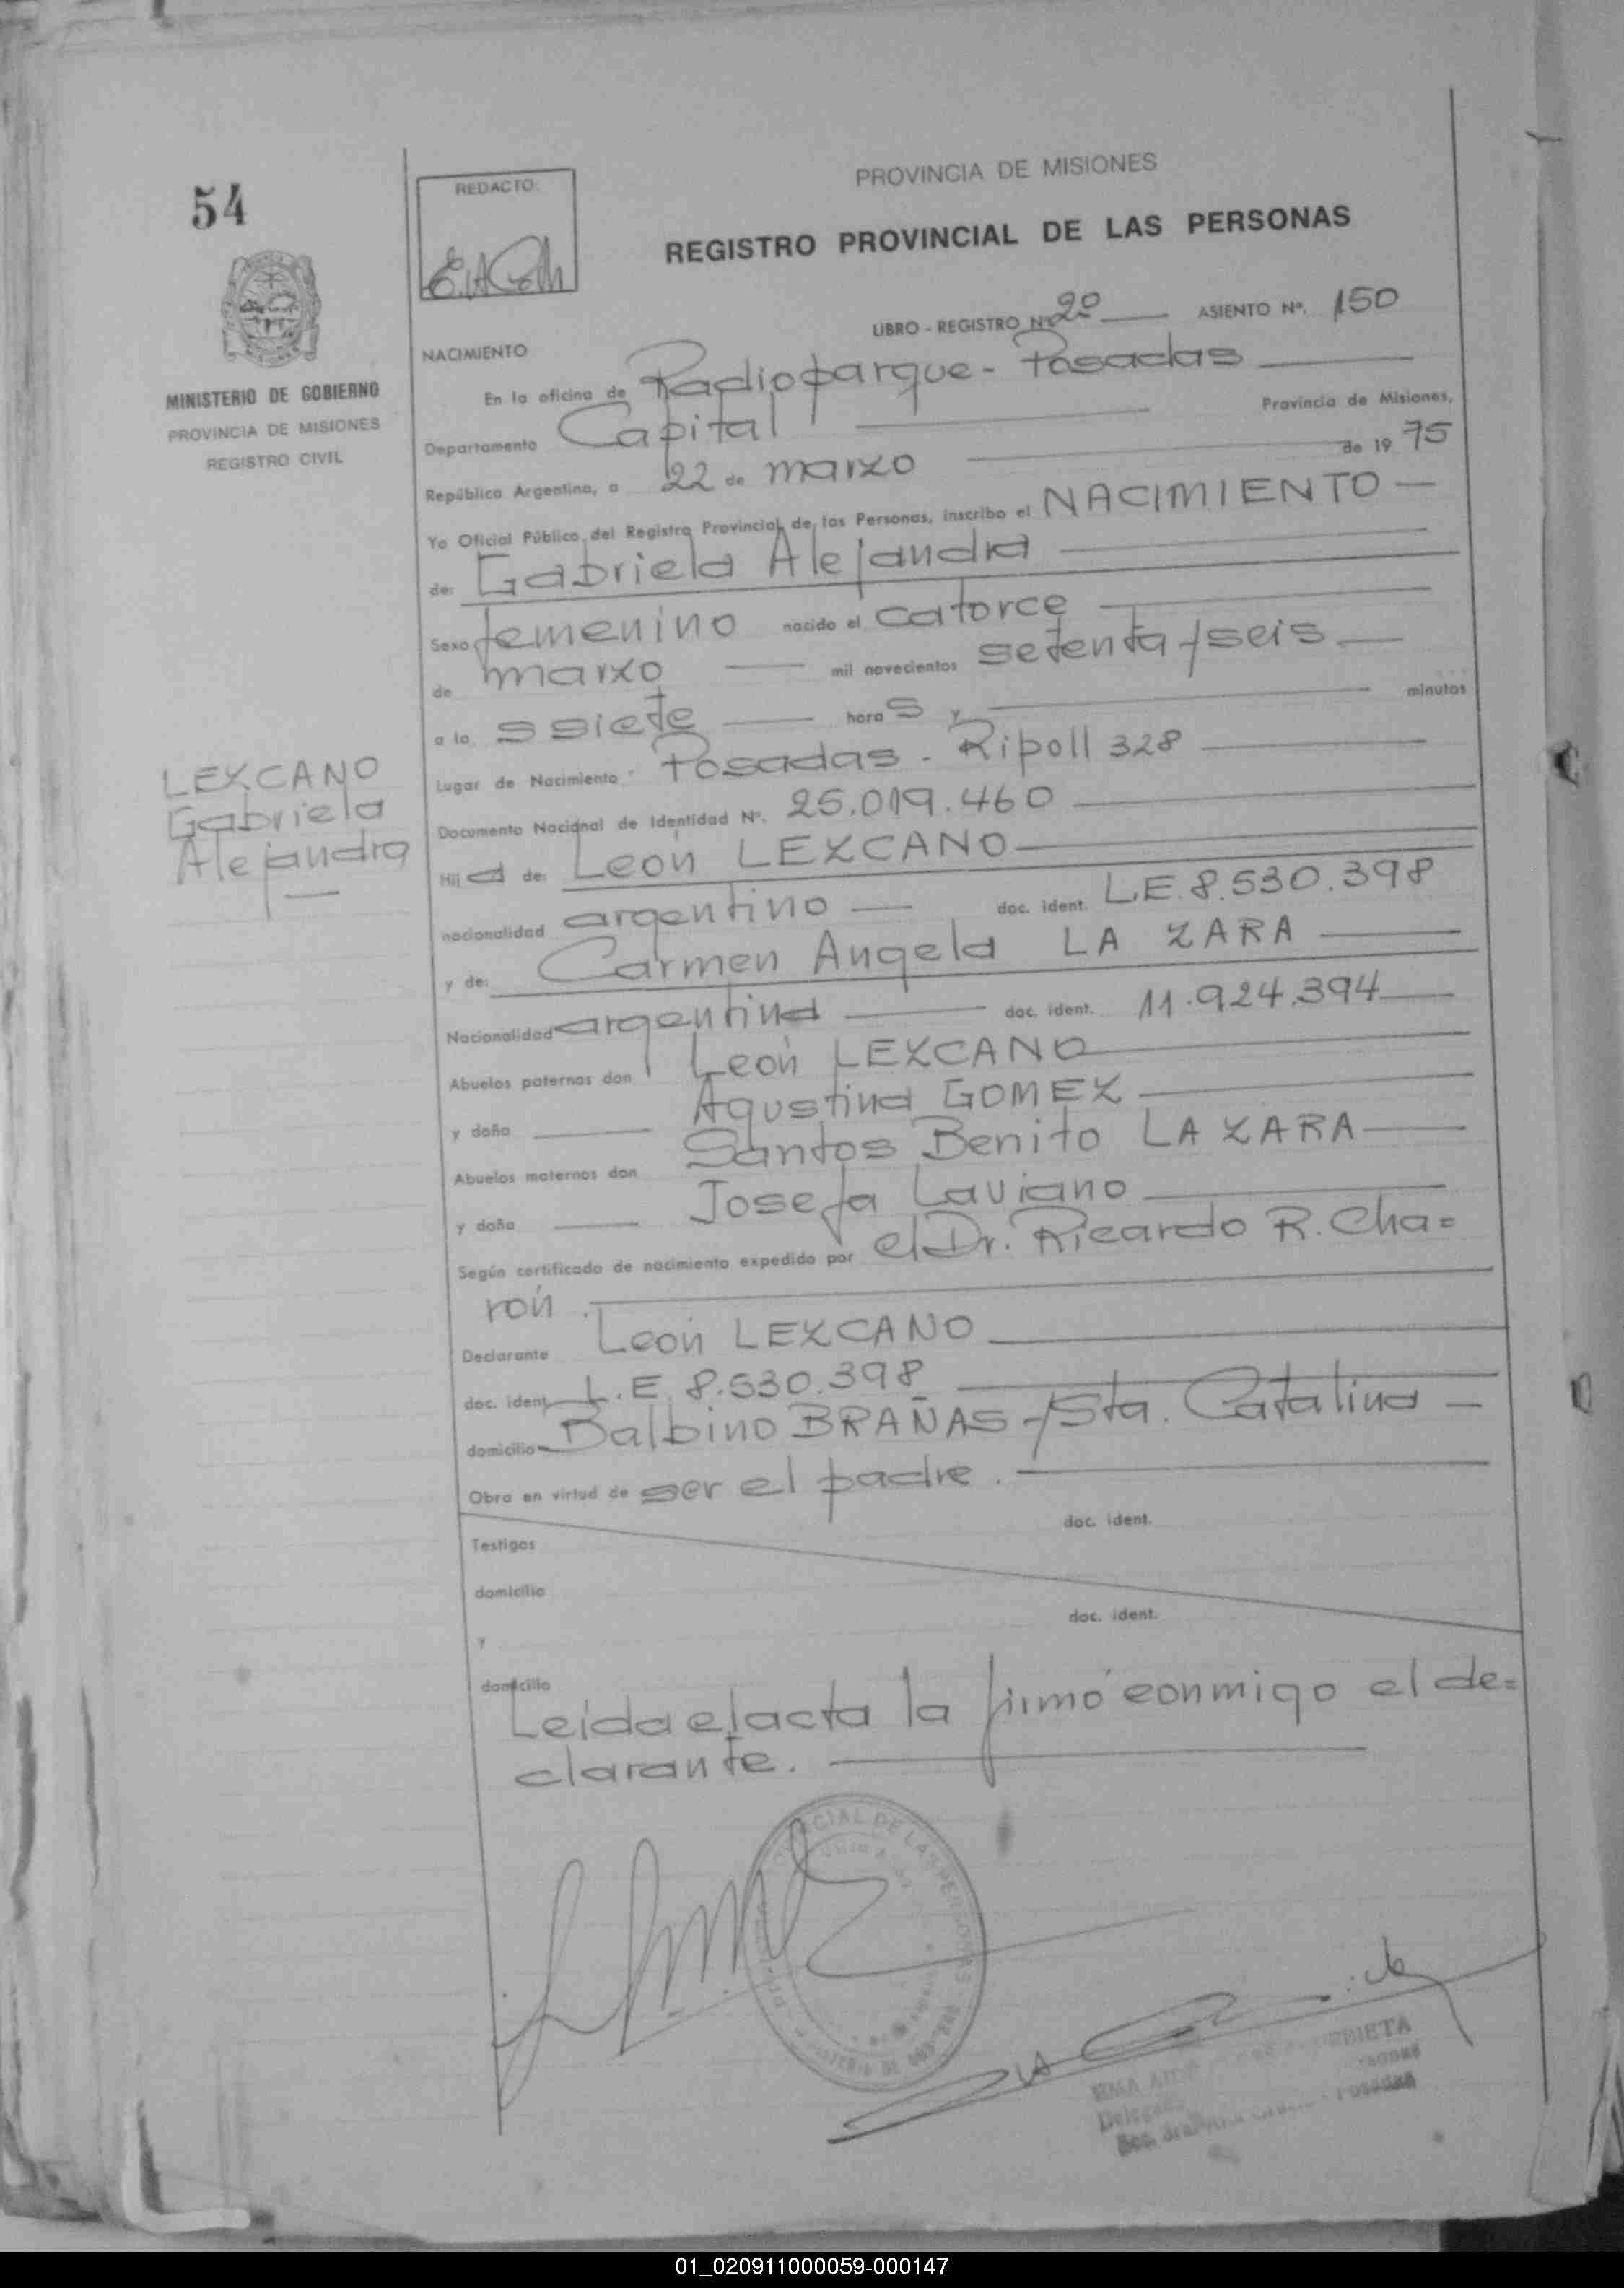 54
REDACTO:
PROVINCIA DE MISIONES
REGISTRO PROVINCIAL DE LAS PERSONAS
MINISTERIO DE GOBIERNO
PROVINCIA DE MISIONES
REGISTRO CIVIL
LIBRO - REGISTRO Nº 2º ASIENTO Nº. 150
NACIMIENTO
En la oficina de Radioparque - Posadas
Departamento Capital Provincia de Misiones,
República Argentina, a 22 de marzo de 19 75
Yo Oficial Público del Registro Provincial de las Personas, inscribo el NACIMIENTO
de: Gabriela Alejandra
Sexo femenino nacido el catorce
de marzo mil novecientos setenta y seis
a la s siete hora s y minutos
Lugar de Nacimiento Posadas - Ripoll 328
LEZCANO
Gabriela
Alejandra
Documento Nacional de Identidad Nº. 25.019.460
Hij a de: León LEZCANO
nacionalidad argentino doc. ident. L.E. 8.530.398
y de: Carmen Angela LA ZARA
Nacionalidad argentina doc. ident. 11.924.394
Abuelos paternos don León LEZCANO
y doña Agustina GOMEZ
Abuelos maternos don Santos Benito LA ZARA
y doña Josefa Laviano
Según certificado de nacimiento expedido por el Dr. Ricardo R. Cha=
rón.
Declarante León LEZCANO
doc. ident. L.E. 8.530.398
domicilio Balbino BRAÑAS - y Sta. Catalina
Obra en virtud de ser el padre.
doc. ident.
Testigos
domicilio
doc. ident.
y
domicilio
Leida el acta la firmó conmigo el de=
clarante.
CIAL DE LAS PERSONAS
01_020911000059-000147